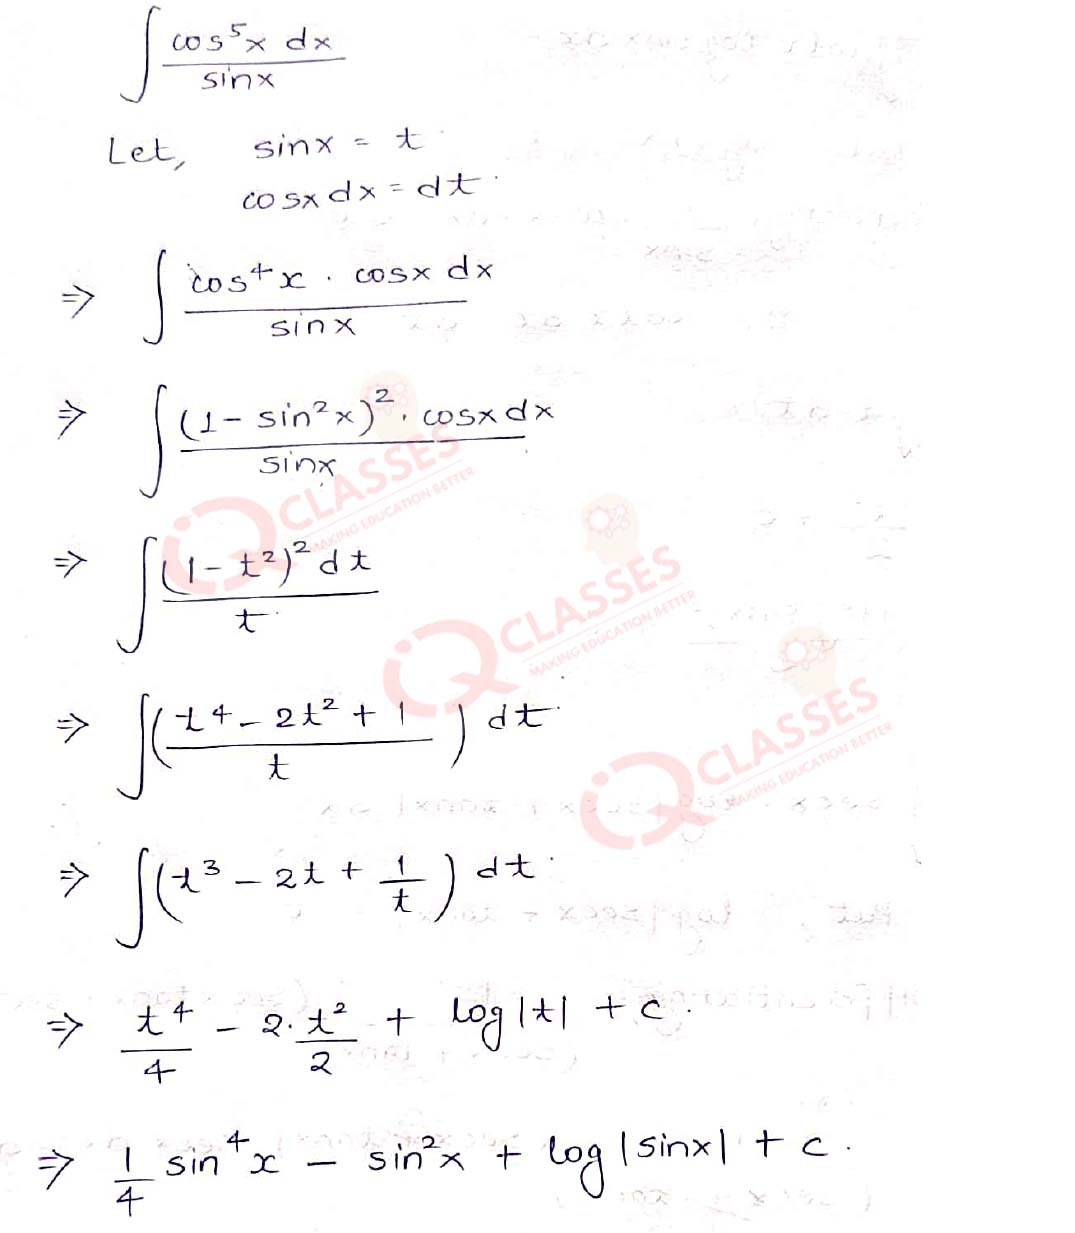 ∫ cos⁵x dx / sinx
Let, sinx = t
cosx dx = dt
⇒ ∫ cos⁴x . cosx dx / sinx
⇒ ∫ (1 - sin²x)² . cosx dx / sinx
⇒ ∫ (1 - t²)² dt / t
⇒ ∫ ( t⁴ - 2t² + 1 / t ) dt
⇒ ∫ ( t³ - 2t + 1/t ) dt
⇒ t⁴/4 - 2. t²/2 + log |t| + c.
⇒ 1/4 sin⁴x - sin²x + log |sinx| + c.
iQ CLASSES
MAKING EDUCATION BETTER
iQ CLASSES
MAKING EDUCATION BETTER
iQ CLASSES
MAKING EDUCATION BETTER